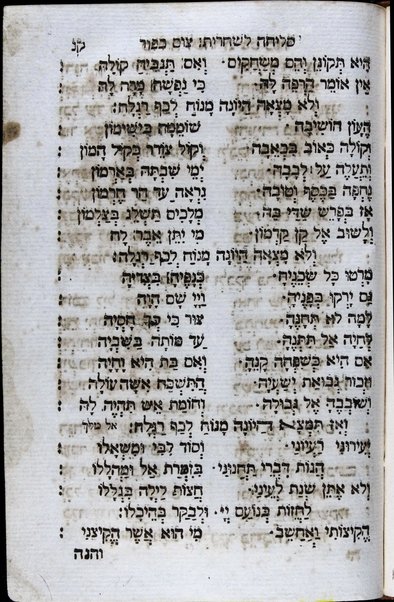 סליחה לשחרית: צום כפור קנ
הִיא תְקוֹנֵן וְהֵם מְשַׂחֲקִים · וְאִם תַּגְבִּיהַּ קוֹלָהּ
אֵין אוֹמֵר הַרְפֵּה לָהּ · כִּי נַפְשָׁהּ מָרָה לָהּ
וְלֹא מָצְאָה הַיּוֹנָה מָנוֹחַ לְכַף רַגְלָהּ:
הֶעָוֹן הוֹשִׁיבָהּ · שׁוֹמֵמָה בִּישִׁימוֹן
וְקוֹלָהּ כְּאוֹב בְּכָאְבָהּ · וְקוֹל צוֹרֵר כְּקוֹל הָמוֹן
וְתַעֲלֶה עַל לְבָבָהּ · יְמֵי שִׁבְתָּהּ בְּאַרְמוֹן
נֶחְפָּה בַּכֶּסֶף וְטוּבָהּ · נִרְאָה עַד הַר חֶרְמוֹן
אָז בְּפָרֵשׂ שַׁדַּי בָּהּ · מְלָכִים תַּשְׁלֵג בְּצַלְמוֹן
וְלָשׁוּב אֶל קֵן קַדְמוֹן · מִי יִתֵּן אֵבֶר לָהּ
וְלֹא מָצְאָה הַיּוֹנָה מָנוֹחַ לְכַף רַגְלָהּ:
כָּל שְׁכֵנֶיהָ · כְּנָפֶיהָ
גַּם יָרְקוּ בְּפָנֶיהָ · וַיְיָ שָׁם הָיָה
לָמָּה לֹא תְחָנֶּהָ · צוּר כִּי בְךָ חָסָיָה
לִחְיָה אַל תִּתְּנֶהָ · עַד מוֹתָהּ בַּשִּׁבְיָה
אִם הִיא כְּשִׁפְחָה קְנֵהָ · וְאִם בַּת הִיא וְחָיָה
וּזְכוֹר נְבוּאַת יְשַׁעְיָה · הֲתִשְׁכַּח אִשָּׁה עוּלָהּ
וְשׁוֹבְבָהּ אֶל גְּבוּלָהּ · וְחוֹמַת אֵשׁ תִּהְיֶה לָהּ
וְאֵין תִּמְצָא הַיּוֹנָה מָנוֹחַ לְכַף רַגְלָהּ: אל מלך
יְעִירוּנִי רַעְיוֹנַי · וְסוֹד לִבִּי וּמִשְׁאָלוֹ
הֲגוֹת דִּבְרֵי תַחֲנוּנַי · בְּזִמְרַת אֵל וּמַהֲלָלוֹ
וְלֹא אֶתֵּן שְׁנַת לְעֵינַי · חֲצוֹת לַיְלָה בִּגְלָלוֹ
לַחֲזוֹת בְּנוֹעַם יְיָ · וּלְבַקֵּר בְּהֵיכָלוֹ:
הֲקִיצוֹתִי וָאֶחְשׁוֹב · מִי הוּא אֲשֶׁר הֱקִיצַנִי
והנה